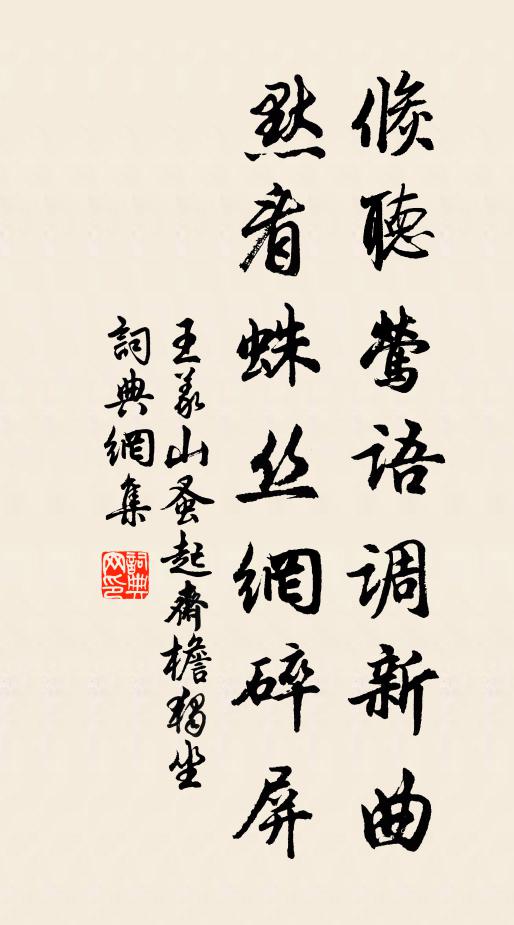 倐聽鶯語調新曲
默看蛛丝網碎屏
王義山蚤起齋檐獨坐
詞典網集
詞典网印